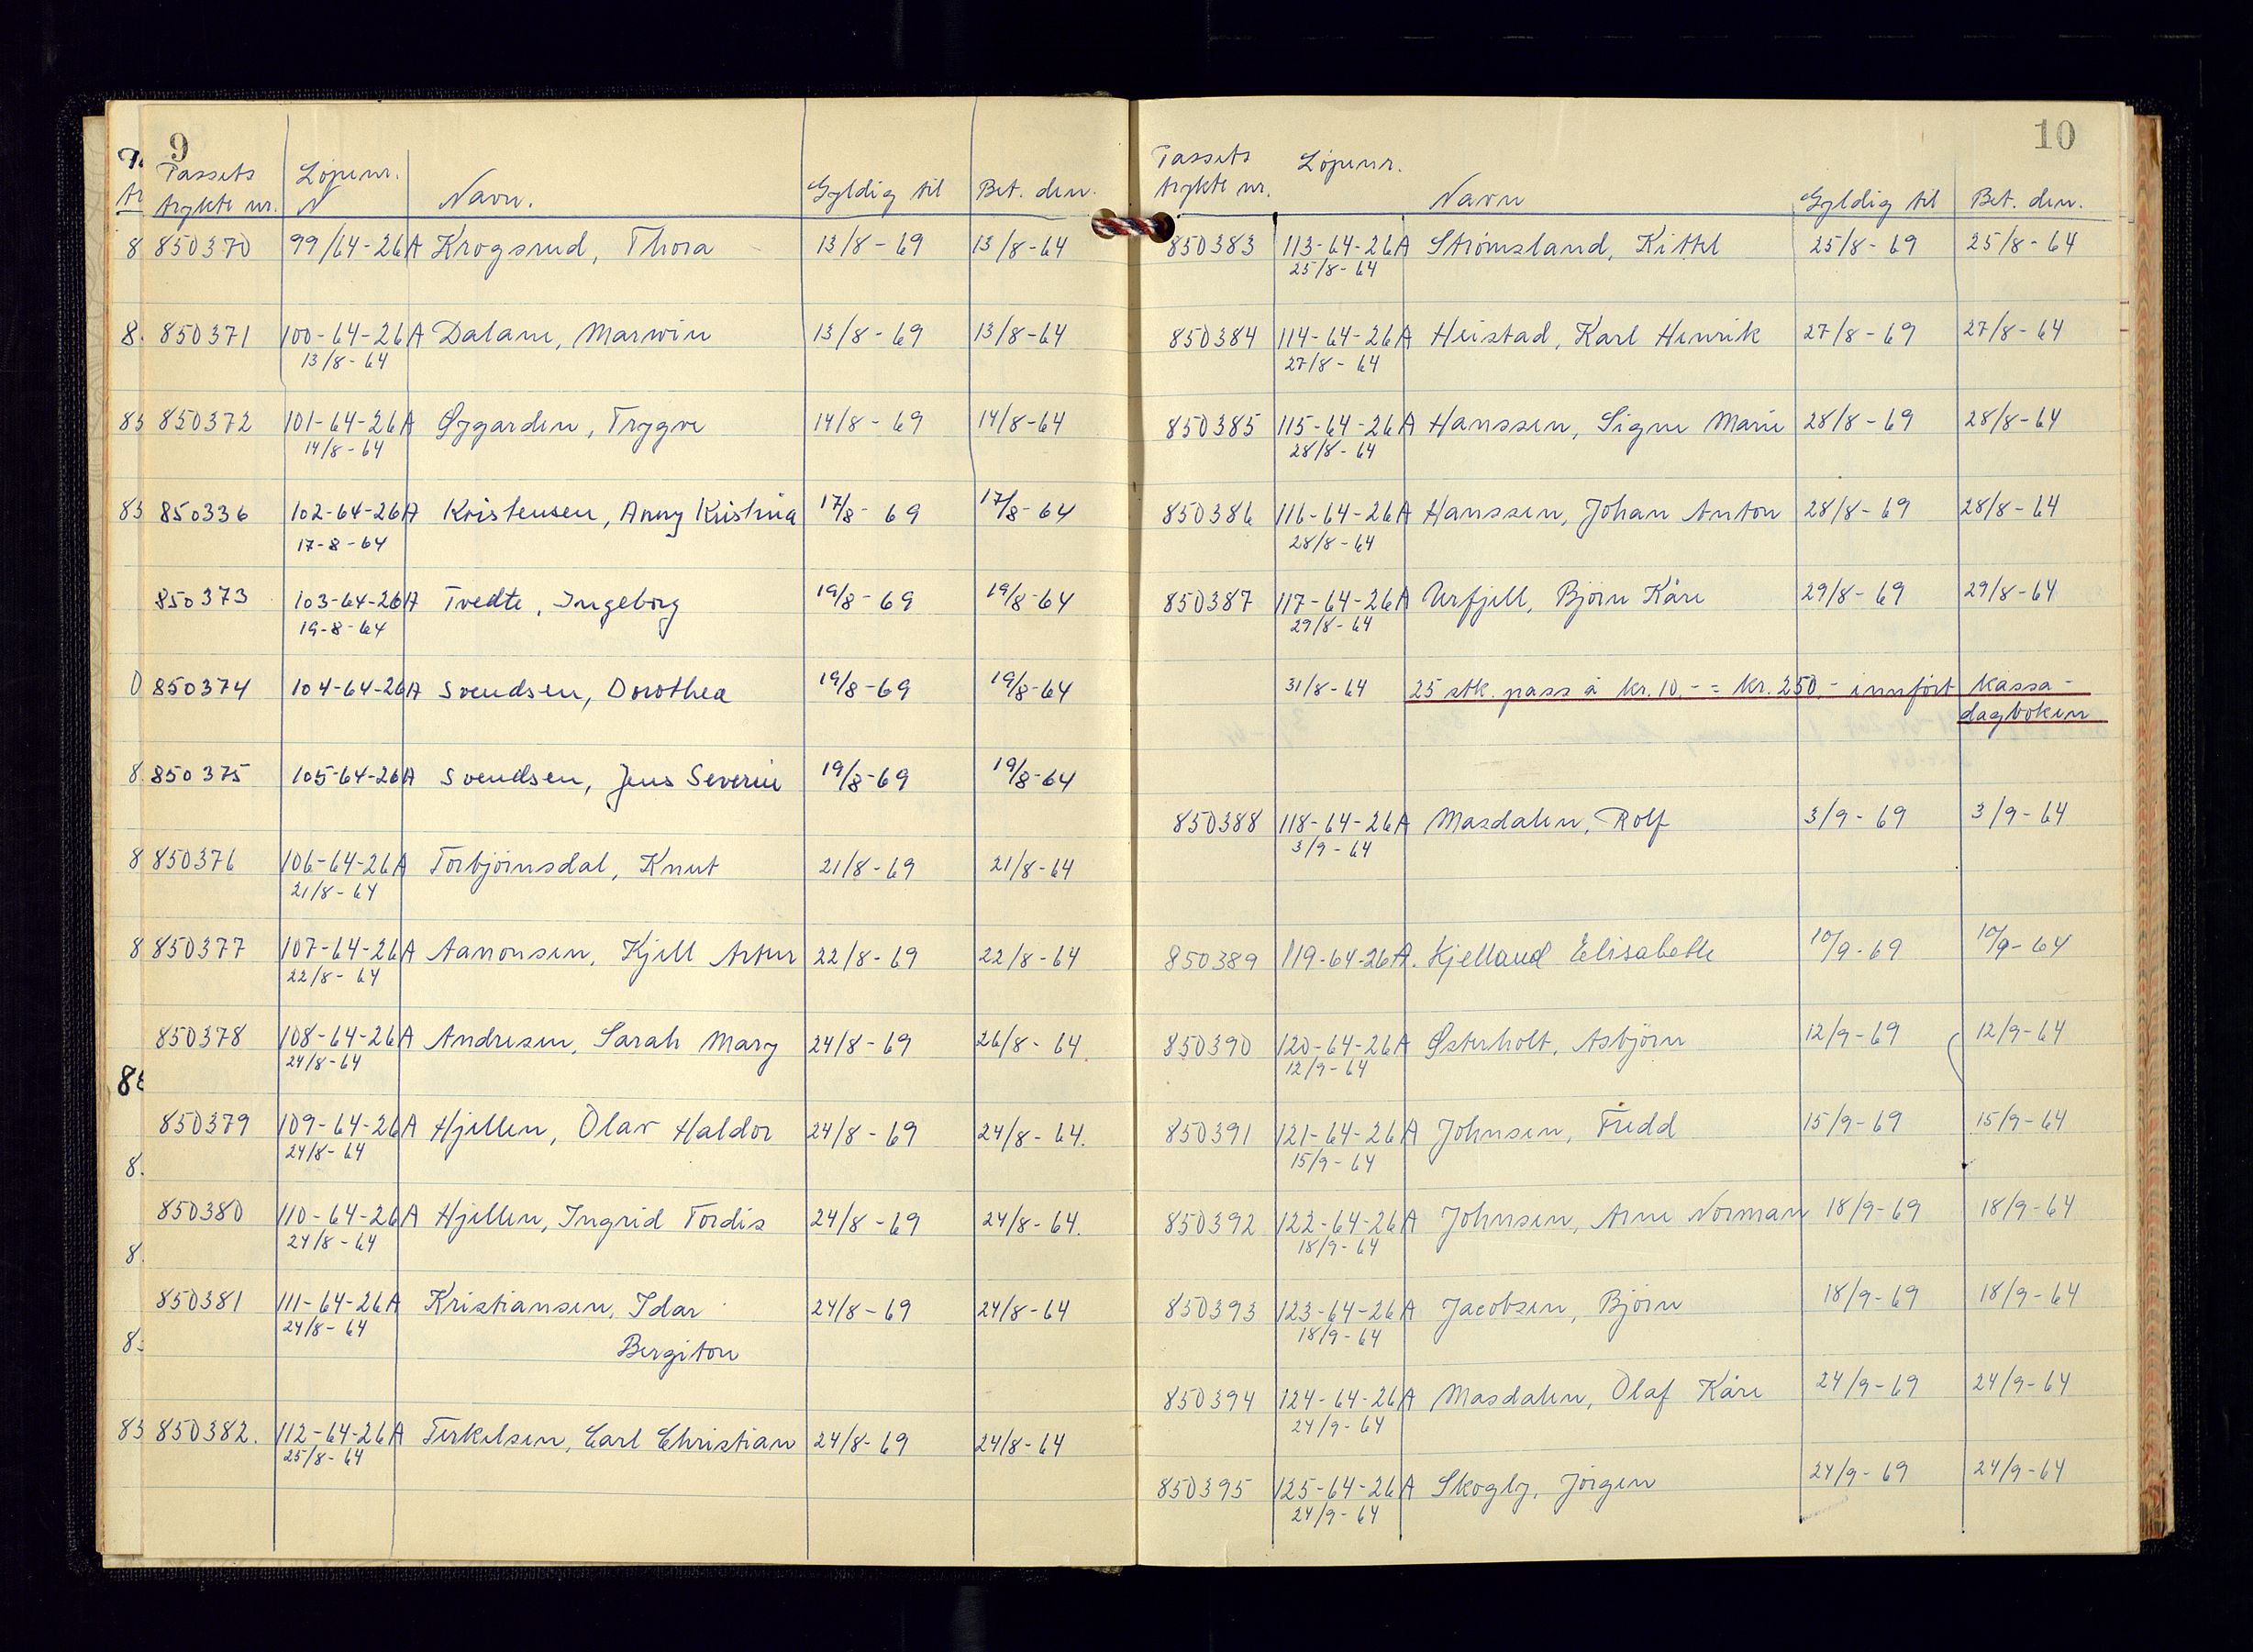 9
Passets Løpenr.
trykte nr. N Navn. Gyldig til Bet. den.
850370 99/64-26A Krogsrud, Thora 13/8-69 13/8-64
850371 100-64-26A Dalane, Marwin 13/8-69 13/8-64
13/8-64
850372 101-64-26A Øygarden, Trygve 14/8-69 14/8-64
14/8-64
850336 102-64-26A Kristensen, Anny Kristina 17/8-69 17/8-64
17-8-64
850373 103-64-26A Tvedte, Ingeborg 19/8-69 19/8-64
19-8-64
850374 104-64-26A Svendsen, Dorothea 19/8-69 19/8-64
850375 105-64-26A Svendsen, Jens Severin 19/8-69 19/8-64
850376 106-64-26A Torbjörnsdal, Knut 21/8-69 21/8-64
21/8-64
850377 107-64-26A Aanonsen, Kjell Artur 22/8-69 22/8-64
22/8-64
850378 108-64-26A Andresen, Sarah Mary 24/8-69 26/8-64.
24/8-64
850379 109-64-26A Hjellen, Olav Haldor 24/8-69 24/8-64.
24/8-64
850380 110-64-26A Hjellen, Ingrid Tordis 24/8-69 24/8-64.
24/8-64
850381 111-64-26A Kristiansen, Idar 24/8-69 24/8-64
24/8-64
Bergiton
850382. 112-64-26A Terkelsen, Carl Christian 24/8-69 24/8-64
25/8-64
10
Passets Løpenr.
trykte nr. Navn Gyldig til Bet. den.
850383 113-64-26A Strømsland, Kittel 25/8-69 25/8-64
25/8-64
850384 114-64-26A Heistad, Karl Henrik 27/8-69 27/8-64
27/8-64
850385 115-64-26A Hanssen, Signe Marie 28/8-69 28/8-64
28/8-64
850386 116-64-26A Hanssen, Johan Anton 28/8-69 28/8-64
28/8-64
850387 117-64-26A Urfjell, Björn Kåre 29/8-69 29/8-64
29/8-64
31/8-64 25 stk. pass à kr. 10,- = kr. 250,- innført kassa-
dagboken
850388 118-64-26A Masdalen, Rolf 3/9-69 3/9-64
3/9-64
850389 119-64-26A. Kjelland Elisabeth 10/9-69 10/9-64
850390 120-64-26A Østerholt, Asbjörn 12/9-69 12/9-64
12/9-64
850391 121-64-26A Johnsen, Fredd 15/9-69 15/9-64
15/9-64
850392 122-64-26A Johnsen, Arne Norman 18/9-69 18/9-64
18/9-64
850393 123-64-26A Jacobsen, Bjørn 18/9-69 18/9-64
18/9-64
850394 124-64-26A Masdalen, Olaf Kåre 24/9-69 24/9-64
24/9-64
850395 125-64-26A Skogly, Jörgen 24/9-69 24/9-64
24/9-64